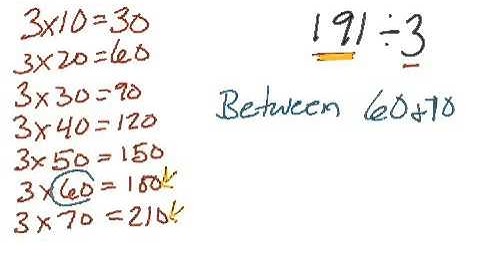 3x10=30
3x20=60
3x30=90
3x40=120
3x50=150
3x60=180
3x70=210
191÷3
Between 60&70